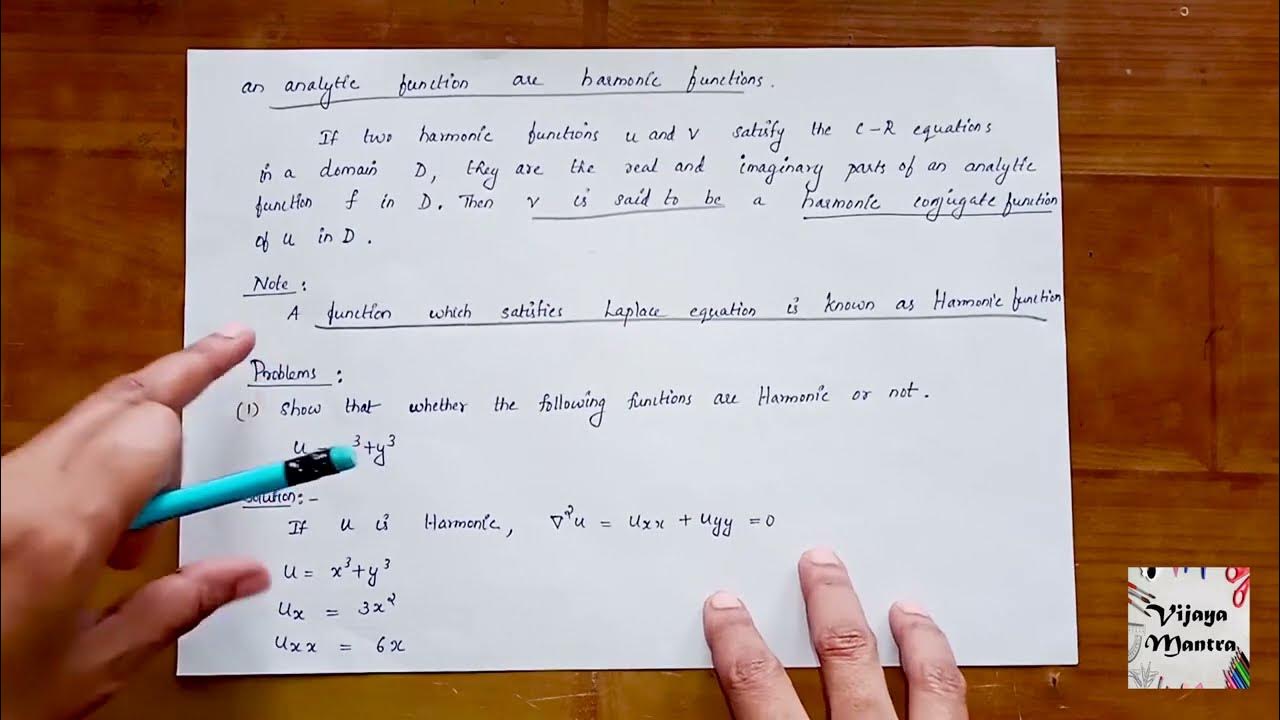 an analytic function are harmonic functions.
If two harmonic functions u and v satisfy the C-R equations
in a domain D, they are the real and imaginary parts of an analytic
function f in D. Then v is said to be a harmonic conjugate function
of u in D.
Note:
A function which satisfies Laplace equation is known as Harmonic function
Problems:
(1) Show that whether the following functions are Harmonic or not.
u = ³+y³
Solution:-
If u is Harmonic, ∇²u = uxx + uyy = 0
u = x³+y³
ux = 3x²
uxx = 6x
Vijaya
Mantra